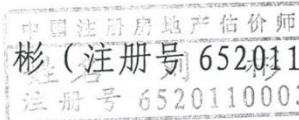 中国注册房地产估价师
彬（注册号 652011
姓名 刘彬
注册号 652011000